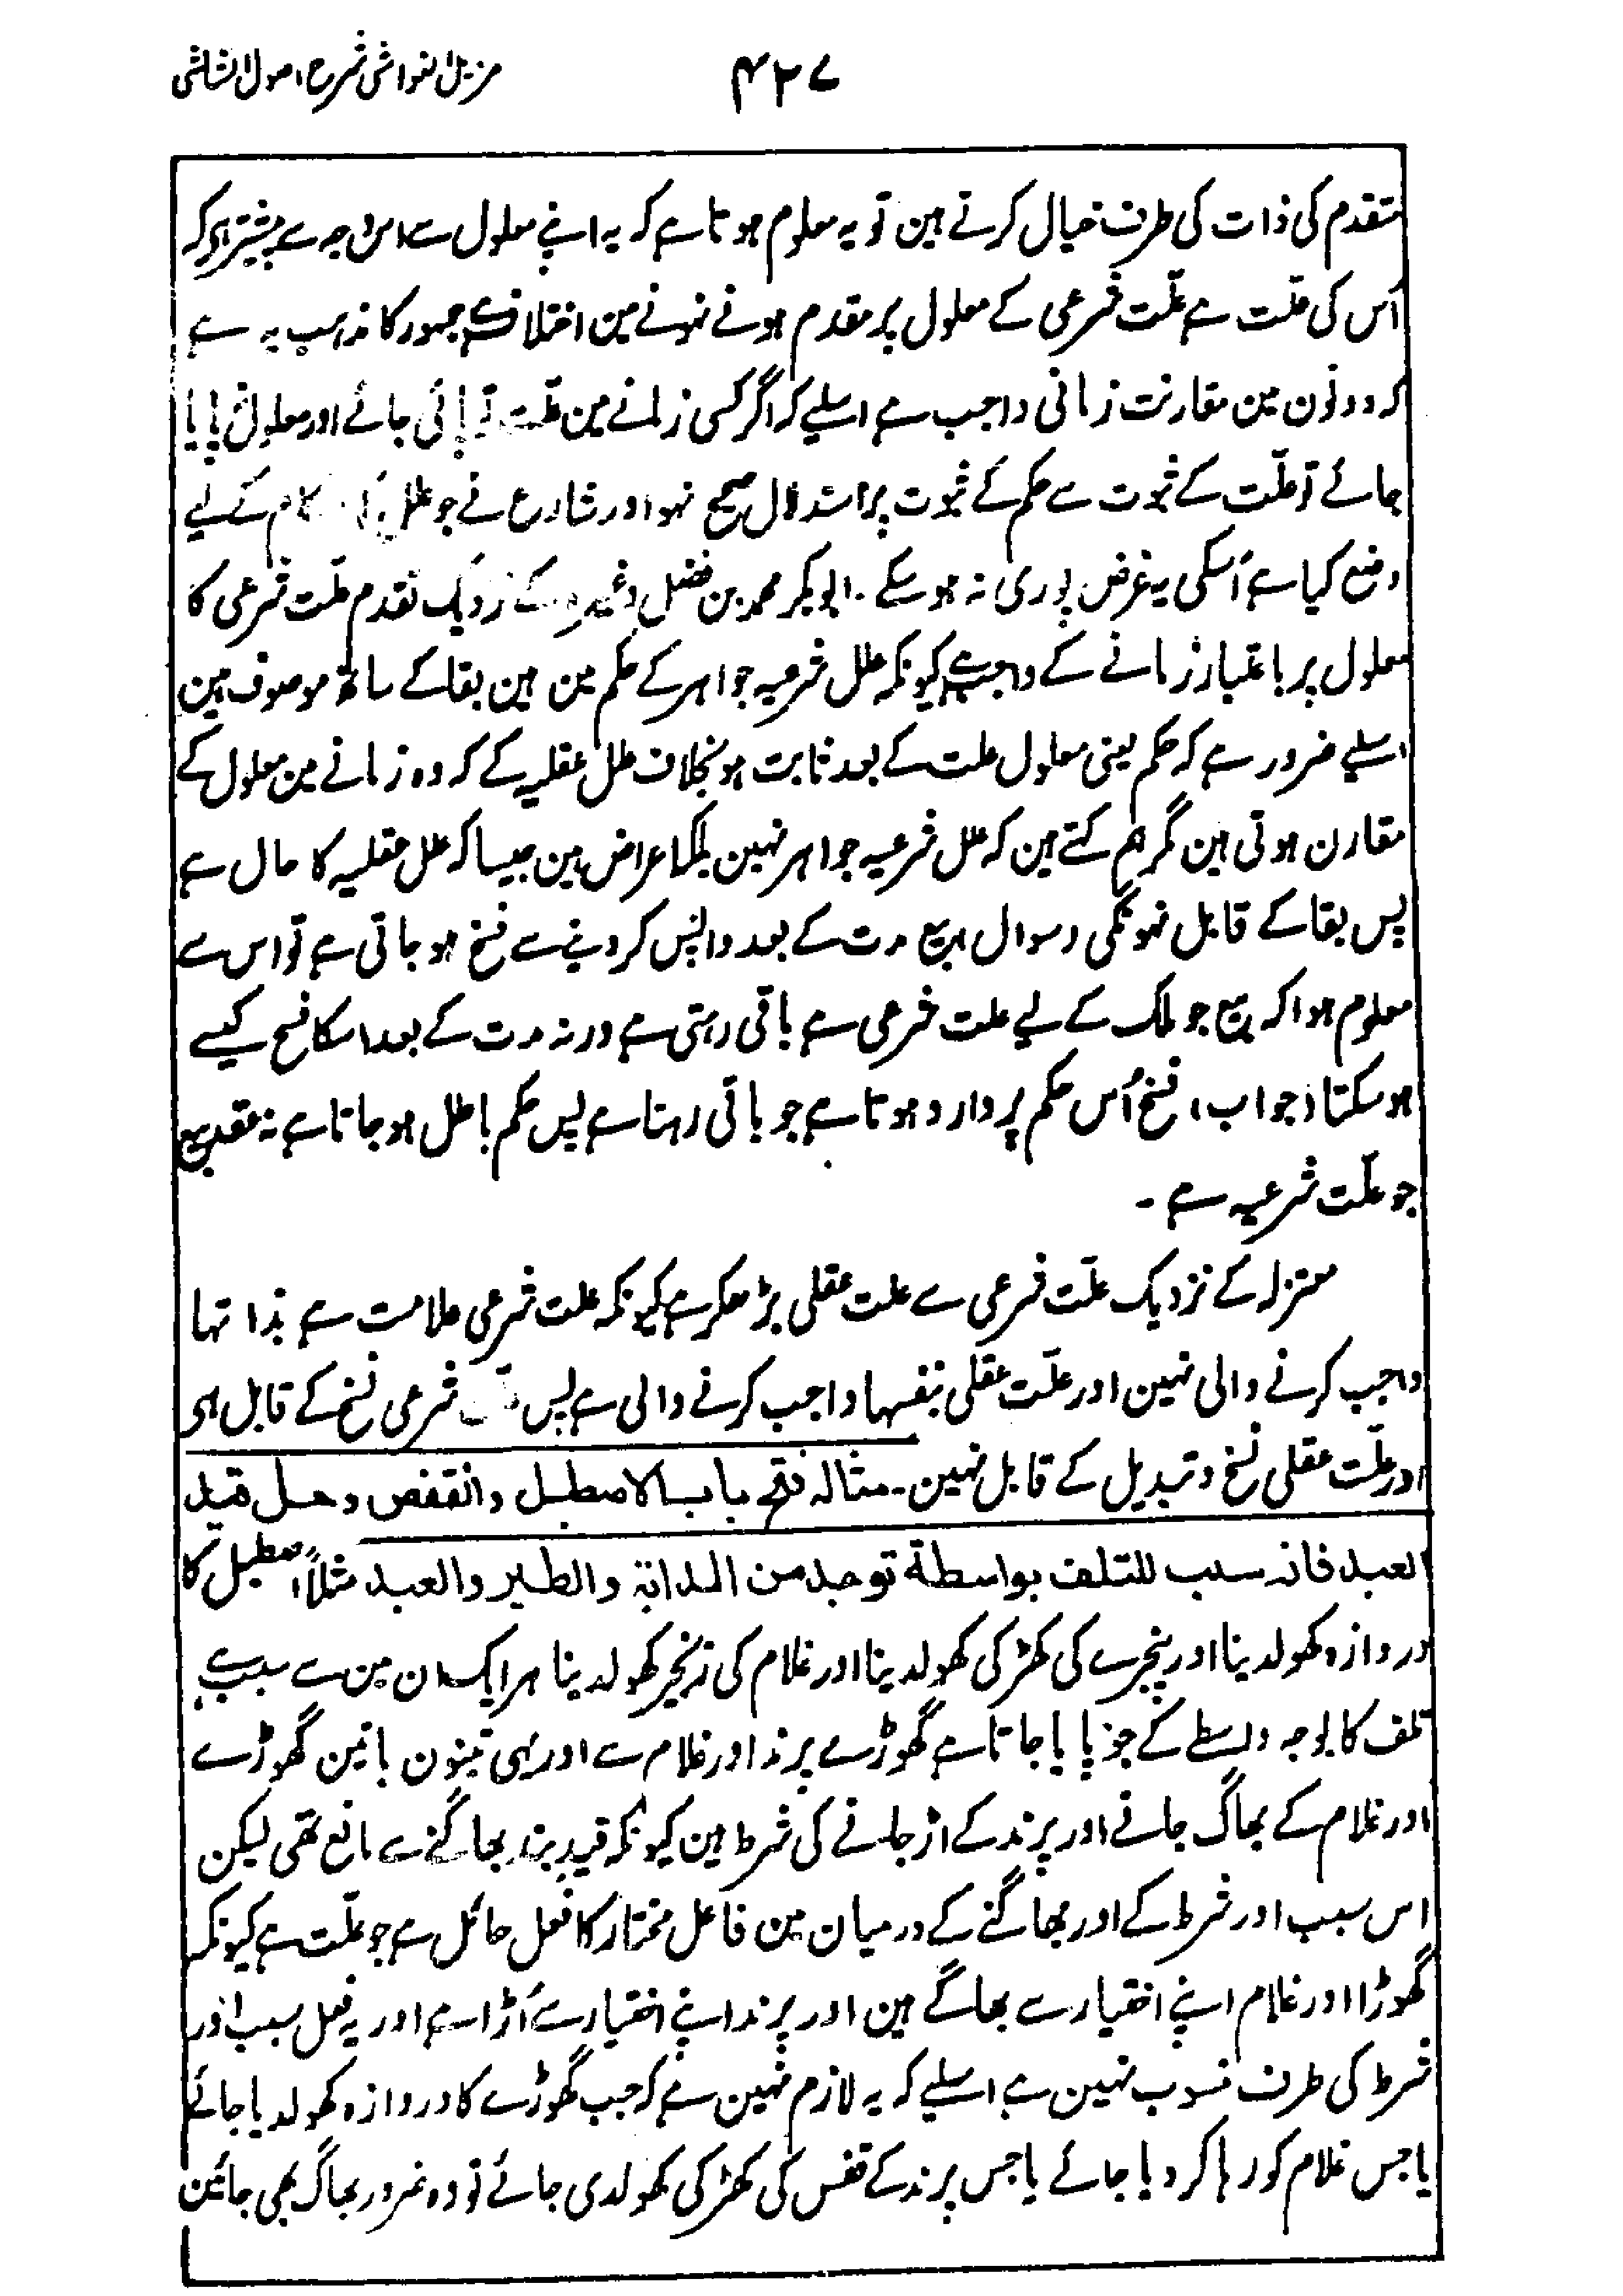 ۴۲۷
مزیل الغواشی شرح اصول الشاشی
متقدم کی ذات کی طرف خیال کرتے ہین تو یہ معلوم ہوتا ہے کہ یہ اپنے معلول سے اس وجہ سے پیشتر ہی کہ
اُس کی علّت ہے علّت شرعی کے معلول پر مقدم ہونے نہونے مین اختلاف ہے جمہور کا مذہب یہ ہے
کہ دونون مین مقارنت زمانی واجب ہے اسلیے کہ اگر کسی زمانے مین علّت پائی جائے اور معلول نہ پایا
جائے تو علّت کے ثبوت سے حکم کے ثبوت پر استدلال صحیح نہو اور شارع نے جو علل کے لیے
وضع کیا ہے اُسکی یہ غرض پوری نہ ہو سکے۔ ابو بکر محمد بن فضل وغیرہ کے نزدیک تقدم علّت شرعی کا
معلول پر باعتبار زمانے کے واجب ہے کیونکہ علل شرعیہ جواہر کے حکم مین ہین بقا کے ساتھ موصوف ہین
اسلیے ضرور ہے کہ حکم یعنی معلول علت کے بعد ثابت ہو بخلاف علل عقلیہ کے کہ وہ زمانے مین معلول کے
مقارن ہوتی ہین مگر ہم کہتے ہین کہ علل شرعیہ جواہر نہین بلکہ اعراض ہین جیسا کہ علل عقلیہ کا حال ہے
پس بقا کے قابل نہونگی (سوال) بیع مدت کے بعد واپس کر دینے سے فسخ ہو جاتی ہے تو اس سے
معلوم ہوا کہ بیع جو ملک کے لیے علت شرعی ہے باقی رہتی ہے ورنہ مدت کے بعد اسکا فسخ کیسے
ہو سکتا (جواب) فسخ اُس حکم پر وارد ہوتا ہے جو باقی رہتا ہے پس حکم باطل ہو جاتا ہے نہ عقد بیع
جو علّت شرعیہ ہے ۔
معتزلہ کے نزدیک علّت شرعی سے علت عقلی بڑھکر ہے کیونکہ علت شرعی علامت ہے بذاتہا
واجب کرنے والی نہین اور علّت عقلی بنفسہا واجب کرنے والی ہے پس شرعی نسخ کے قابل ہی
اور علّت عقلی نسخ و تبدیل کے قابل نہین۔ مثالہ فتح باب الاصطبل والقفص وحل قید
العبد فانہ سبب للتلف بواسطة توجد من الدابة والطیر والعبد مثلاً اصطبل کا
دروازہ کھولدینا اور پنجرے کی کھڑکی کھولدینا اور غلام کی زنجیر کھولدینا ہر ایک ان مین سے سبب ہے
تلف کا بوجہ واسطے کے جو پایا جاتا ہے گھوڑے پرند اور غلام سے اور یہی تینون باتین گھوڑے
اور غلام کے بھاگ جانے اور پرند کے اڑ جانے کی شرط ہین کیونکہ قید بند بھاگنے سے مانع تھی لیکن
اس سبب اور شرط کے اور بھاگنے کے درمیان مین فاعل مختار کا فعل حائل ہے جو علّت ہے کیونکہ
گھوڑا اور غلام اپنے اختیار سے بھاگے ہین اور پرند اپنے اختیار سے اُڑا ہے اور یہ فعل سبب اور
شرط کی طرف منسوب نہین ہے اسلیے کہ یہ لازم نہین ہے کہ جب گھوڑے کا دروازہ کھولدیا جائے
یا جس غلام کو رہا کر دیا جائے یا جس پرند کے قفس کی کھڑکی کھولدی جائے تو وہ ضرور بھاگ بھی جائین